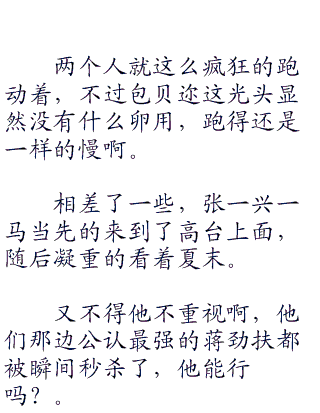 两个人就这么疯狂的跑
动着，不过包贝迩这光头显
然没有什么卵用，跑得还是
一样的慢啊。
相差了一些，张一兴一
马当先的来到了高台上面，
随后凝重的看着夏末。
又不得他不重视啊，他
们那边公认最强的蒋劲扶都
被瞬间秒杀了，他能行
吗？。